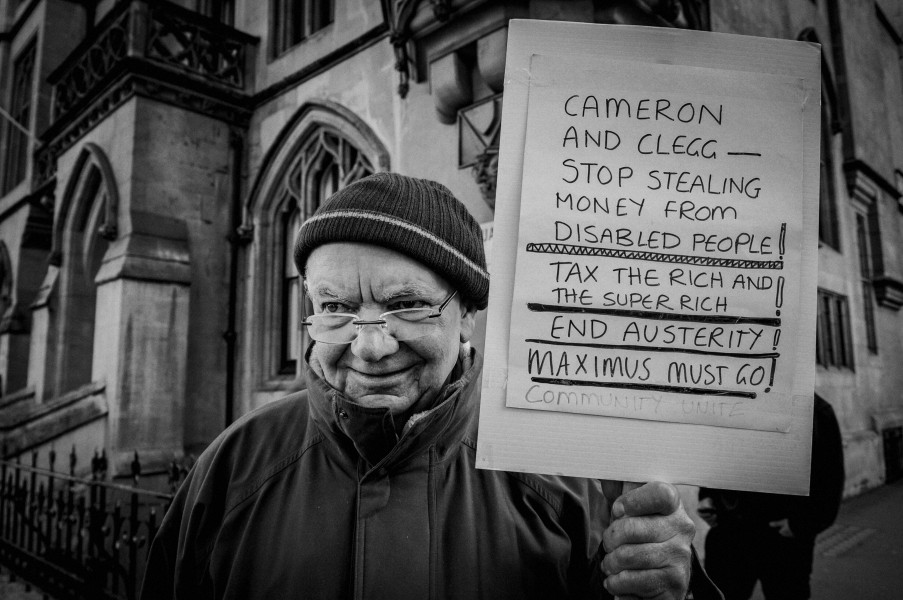 CAMERON
AND CLEGG —
STOP STEALING
MONEY FROM
DISABLED PEOPLE!
TAX THE RICH AND
THE SUPER RICH!
END AUSTERITY!
MAXIMUS MUST GO!
COMMUNITY UNITE